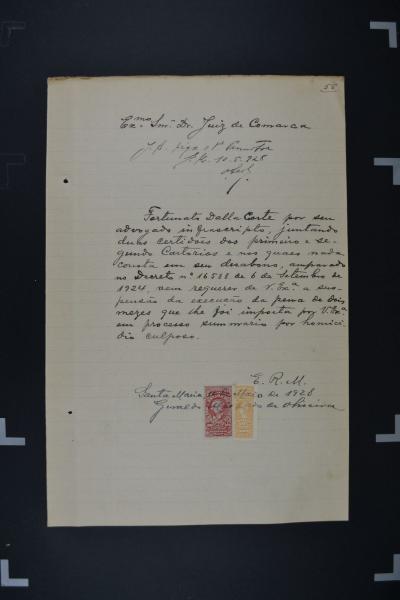 58
Exmo. Snr. Dr. Juiz de Comarca
J. A.
10.5.928
Fortunato Dalla Corte por seu
advogado infrascripto, juntando
duas certidões dos primeiro e se-
gundo Cartorios e nos quaes nada
consta em seu desabono, amparado
no Decreto nº 16.588 de 6 de Setembro de
1924, vem requerer de V. Exª a sus-
pensão da execução da pena de dois
mezes que lhe foi imposta por V. Exª
em processo summario por homici-
dio culposo.
E. R. M.
Santa Maria Maio de 1928
de Oliveira